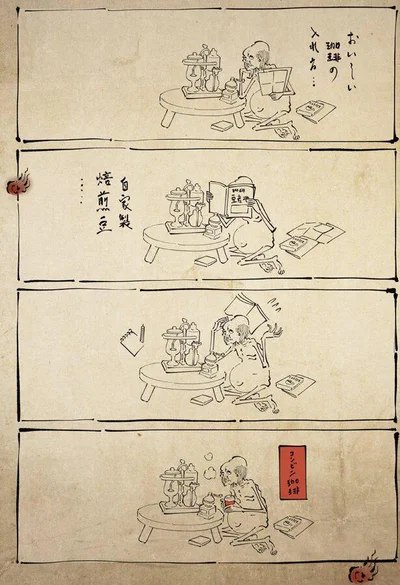 おいしい
珈琲の
入れ方…
自家製
焙煎豆
……
コンビニ
珈琲